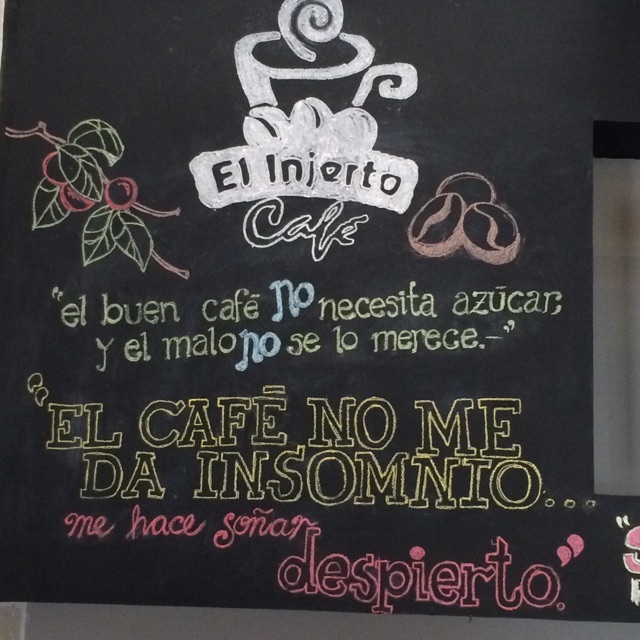 El Injerto
Café
"el buen café no necesita azúcar,
y el malo no se lo merece.-"
"EL CAFÉ NO ME
DA INSOMNIO...
me hace soñar
despierto."